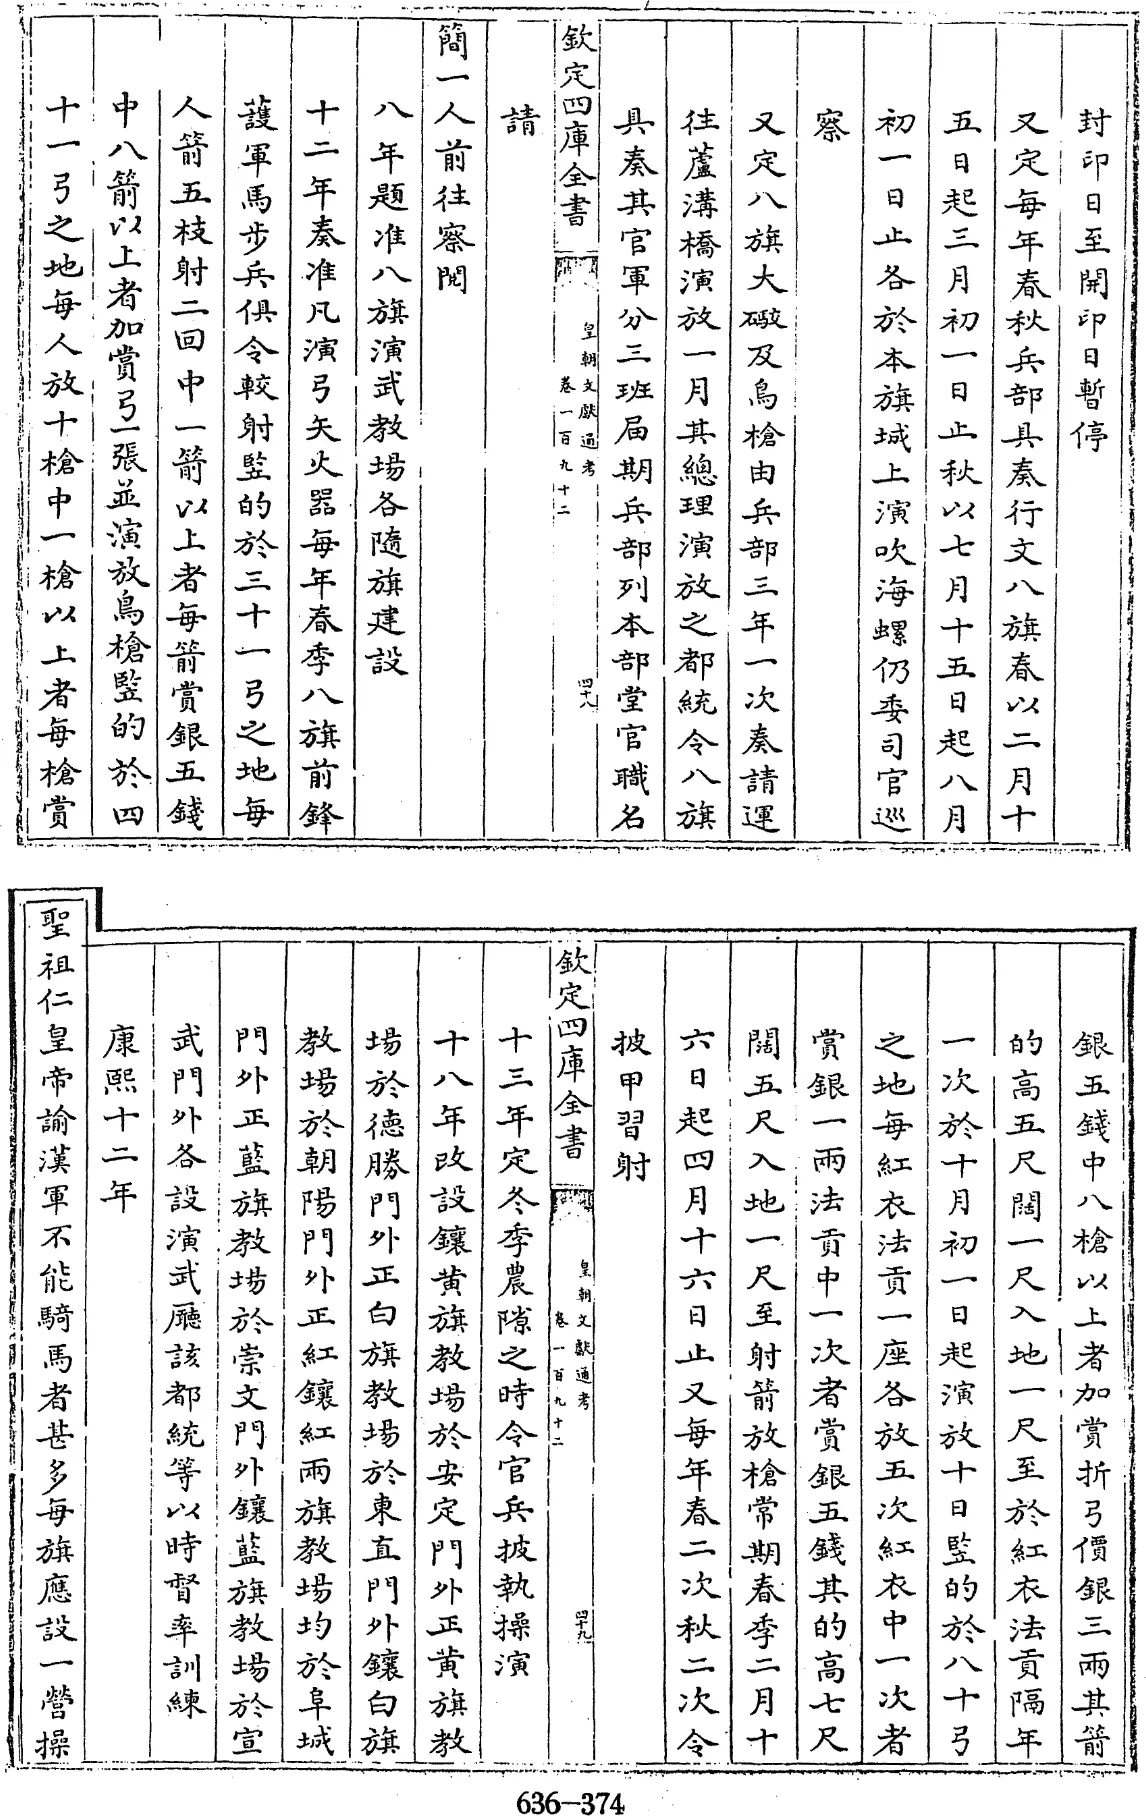 封印日至開印日暫停
又定每年春秋兵部具奏行文八旗春以二月十
五日起三月初一日止秋以七月十五日起八月
初一日止各於本旗城上演吹海螺仍委司官巡
察
又定八旗大礮及鳥槍由兵部三年一次奏請運
往蘆溝橋演放一月其總理演放之都統令八旗
具奏其官軍分三班届期兵部列本部堂官職名
欽定四庫全書
皇朝文獻通考
卷一百九十二
四十八
請
簡一人前往察閱
八年題准八旗演武教場各隨旗建設
十二年奏准凡演弓矢火器每年春季八旗前鋒
護軍馬步兵俱令較射監的於三十一弓之地每
人箭五枝射二回中一箭以上者每箭賞銀五錢
中八箭以上者加賞弓一張並演放鳥槍監的於四
十一弓之地每人放十槍中一槍以上者每槍賞
銀五錢中八槍以上者加賞折弓價銀三兩其箭
的高五尺闊一尺入地一尺至於紅衣法貢隔年
一次於十月初一日起演放十日監的於八十弓
之地每紅衣法貢一座各放五次紅衣中一次者
賞銀一兩法貢中一次者賞銀五錢其的高七尺
闊五尺入地一尺至射箭放槍常期春季二月十
六日起四月十六日止又每年春二次秋二次令
披甲習射
欽定四庫全書
皇朝文獻通考
卷一百九十二
四十九
十三年定冬季農隙之時令官兵披執操演
十八年改設鑲黄旗教場於安定門外正黄旗教
場於德勝門外正白旗教場於東直門外鑲白旗
教場於朝陽門外正紅鑲紅兩旗教場均於阜城
門外正藍旗教場於崇文門外鑲藍旗教場於宣
武門外各設演武廳該都統等以時督率訓練
康熙十二年
聖祖仁皇帝諭漢軍不能騎馬者甚多每旗應設一營操
636-374